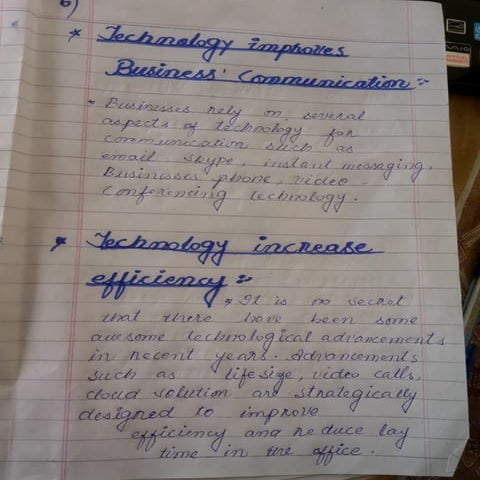 6)
* Technology improves
Business' Communication :-
* Businesses rely on several
aspects of technology for
communication such as
email, skype, instant messaging,
Businesses phone, video -
conferencing technology.
* Technology increase
efficiency :-
* It is no secret
that there have been some
awesome technological advancements
in recent years. Advancements
such as lifesize, video calls,
cloud solution are strategically
designed to improve
efficiency and reduce lay
time in the office.
VAIO